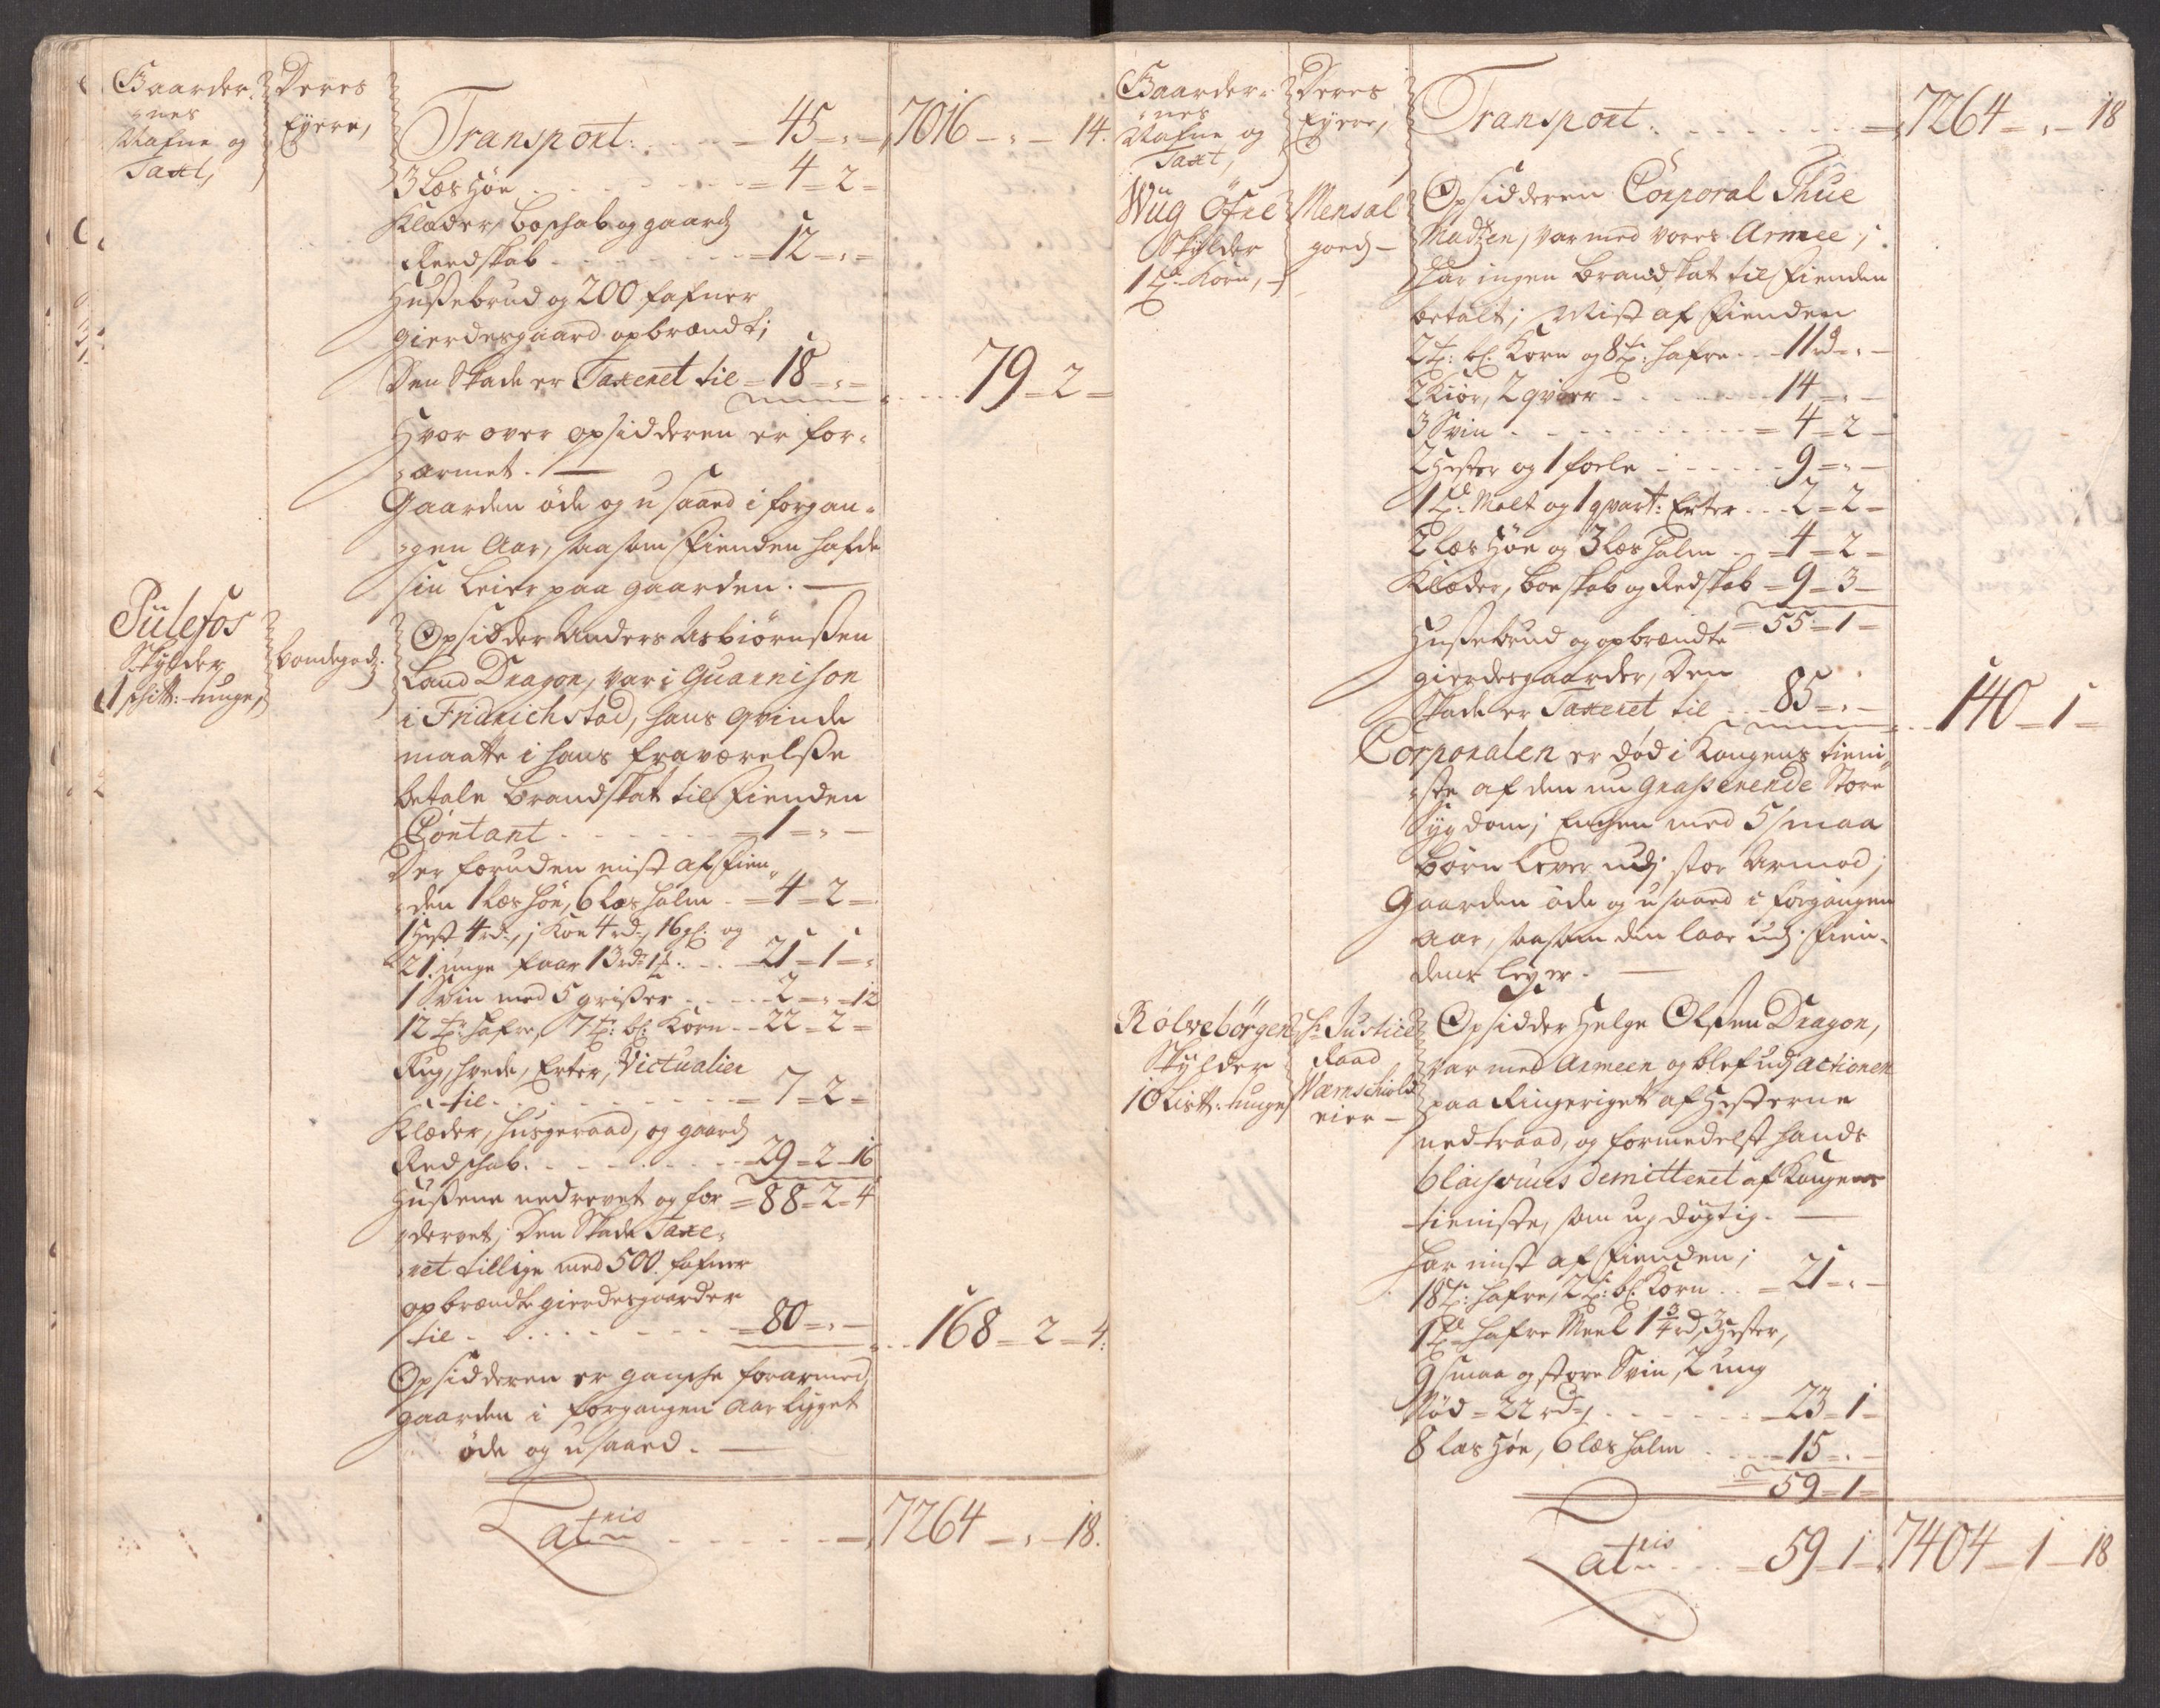 Gaarder
nes
Nafne og
Taxt,
Deres
Eyere,
Transport: 45 = „ = 7016 — „ — 14.
3 Læs Høe = 4 = 2 =
Klæder, boschab og gaards
Reedskab = 12 = „ =
Hussebrud og 200 fafner
gierdesgaard opbrændt;
Den Skade er Taxeret til = 18 = „ = 79 = 2 =
Hvor over opsidderen er for-
armet. —
Gaarden öde og usaaed i forgan-
gen Aar, saasom Fienden hafde
sin Leier paa gaarden. —
Tülefos
Skylder
1 schitt: tunge,
bondegods.
Opsidder Anders Asbiørnssen
Land Dragon, var i Guarnison
i Fridrichstad, hans qvinde
maatte i hans fraværelsse
betale Brandskat til Fienden
Contant = 1 = „ —
Der foruden mist af Fien-
den 1 Læs høe, 6 Læs halm = 4 = 2 =
1 Hest 4 rd, 1 Koe 4 rd, 16 s: og
21 unge faar 13 rd 1 = 21 = 1 = „
1 Svin med 5 grisser 2 = „ = 12
12 t: Hafre, 7 t: bl: Korn 22 = 2 =
Rug, hvede, Erter, Victualier
til = 7 = 2 =
Klæder, husgeraad, og gaards
Redschab. = 29 = 2 = 16
Hussene nedrevet og for- = 88 = 2 = 4
dervet; Den Skade Taxe-
ret tillige med 500 fafner
opbrændte gierdesgaarder
til = 80 = „ — 168 = 2 = 4.
Opsidderen er gansche forarmed,
gaarden i forgangen Aar ligget
öde og usaaed. —
Lateris 7264 — „ — 18.
Gaarder-
nes
Nafne og
Taxt,
Deres
Eyere,
Transport. 7264 — „ — 18
Wüg Öfre
Skylder
1 Korn,
Mensal
goeds —
Opsidderen Corporal Thue
Madtzen, var med vores Armee;
har ingen brandskat til Fienden
betalt; Mist af Fienden
2 t: bl: Korn og 8 t: Hafre 11 rd = „ —
2 Kiör, 2 qvier 14 = „ —
3 Svin = 4 = 2 —
2 Hester og 1 foele 9 = „ —
1 t: Malt og 1 qvart: Erter 2 = 2 —
2 Læs Høe og 3 Læs halm = 4 = 2 —
Klæder, boeskab og Redskab = 9 = 3 —
Hussebrud og opbrændte = 55 = 1 —
gierdesgaarder, Den
Skade er Taxeret til 85 = „ — 140 = 1 =
Corporalen er död i Kongens tieni-
ste af den nu Grasserende Store
Sygdom; Enchen med 5 smaa
Börn lever udj stor Armod;
Gaarden öde og usaaed i forgangen
Aar, saasom den laae udj Fien-
dens leyer. —
Rolvsbörgen
Skylder
10 Listt: tunge
Hr Justice
Raad
Wärnschiold
eier —
Opsidder Helge Olssen Dragon,
var med Armeen og blef udj actionen
paa Ringeriget af Hesterne
nedtraad, og formedelst hands
demitteret af Kongens
tieniste, som udögtig. —
har mist af Fienden;
18 t: Hafre, 2 t: bl: Korn = 21 = „ —
1 t: Hafre Meel 1 3/4 rd, 3 Hester,
9 smaa og store Svin, 2 ung
Nöd = 22 rd, 23 = 1 —
8 Læs Höe, 6 læs halm = 15 = „ —
59 = 1 =
Lateris = 59 = 1 = 7404 = 1 — 18